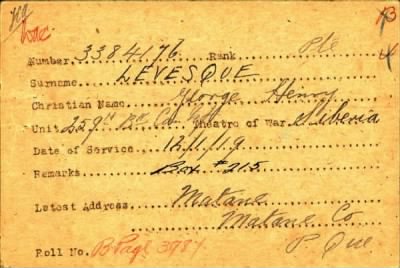 Number 3384176 Rank Pte
Surname LEVESQUE
Christian Name George Henry
Unit 259th Bn Theatre of War Siberia
Date of Service 12/1/19
Remarks Box #215
Latest Address Matane
Matane Co
P Que
Roll No. B Page 3987